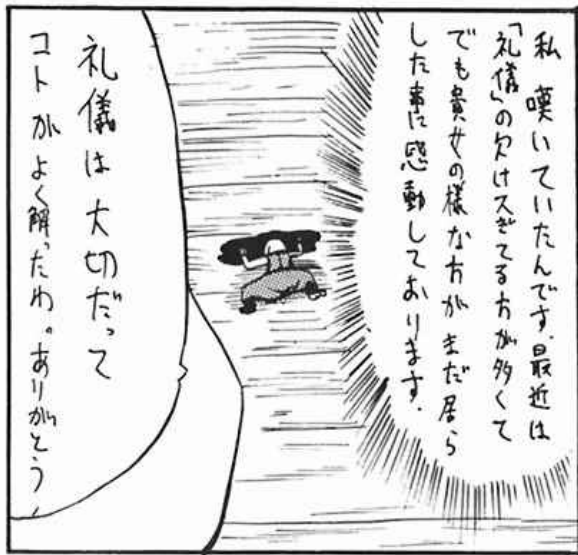 私 嘆いていたんです。最近は
「礼儀」の欠けスぎてる方が多くて
でも貴女の様な方がまだ居ら
した事に感動しております.
礼儀は大切だって
コトがよく解ったわ。ありがとう